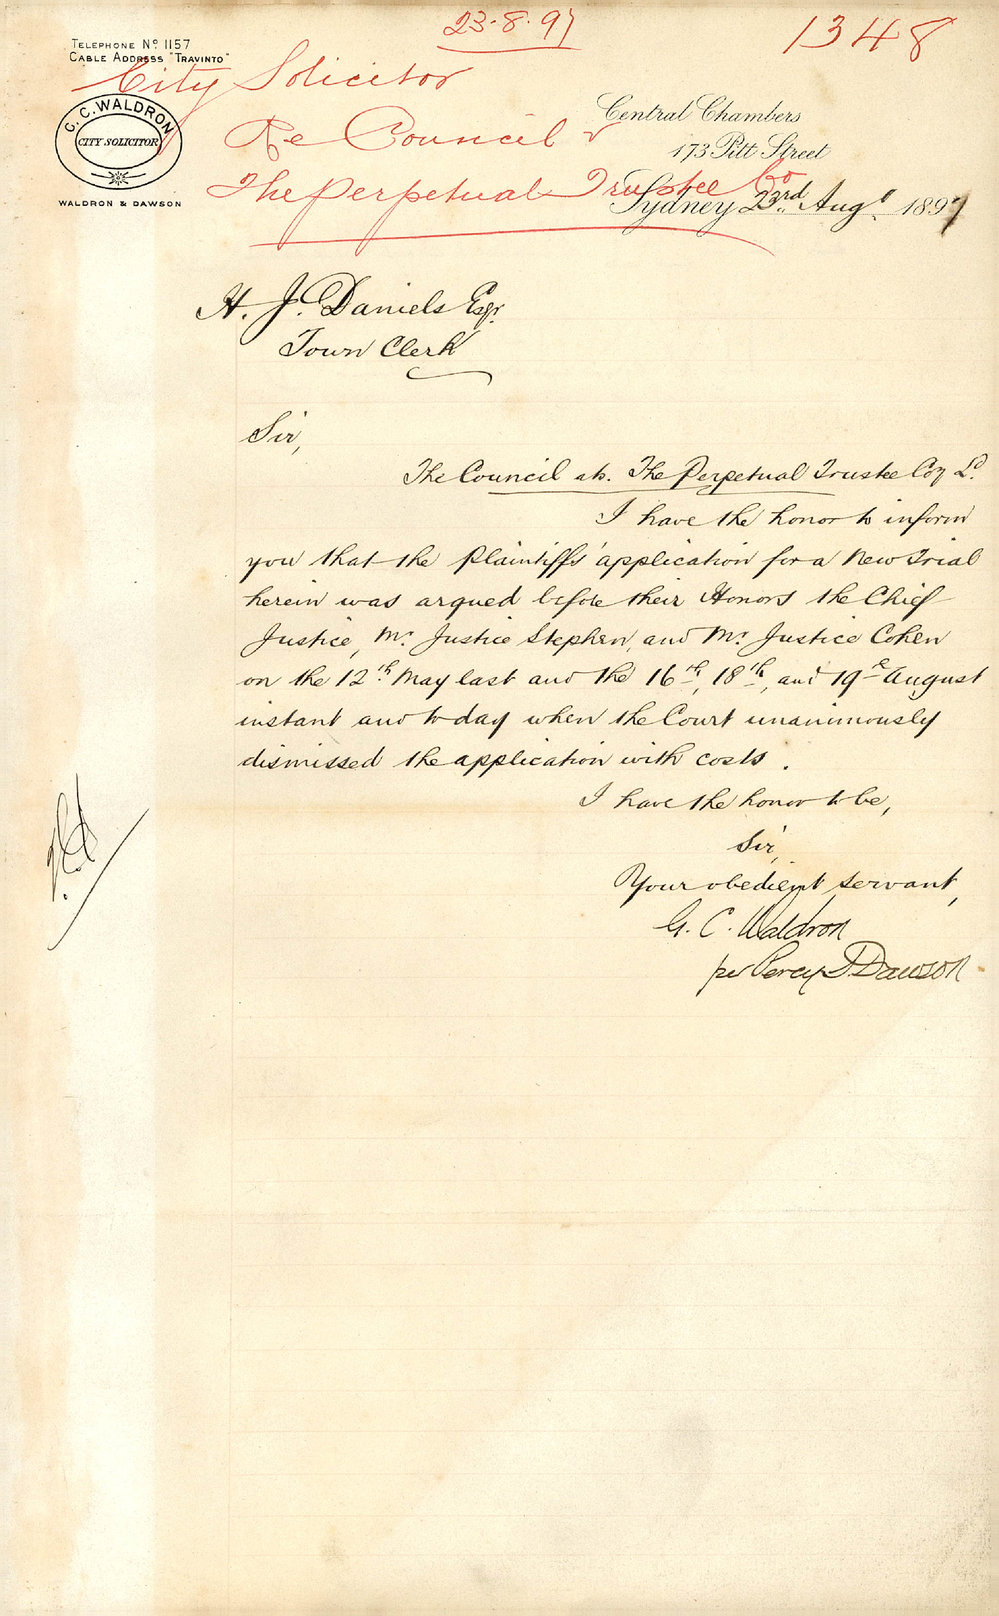 23.8.97
1348
TELEPHONE No. 1157
CABLE ADDRESS "TRAVINTO"
City Solicitor
G. C. WALDRON
CITY SOLICITOR
WALDRON & DAWSON
Re Council v
The Perpetual Trustee Co
Central Chambers
173 Pitt Street
Sydney 23rd Augt 1897
H. J. Daniels Esqr.
Town Clerk
Sir,
The Council ats. The Perpetual Trustee Coy Ld.
I have the honor to inform
you that the Plaintiffs' application for a New Trial
herein was argued before their Honors the Chief
Justice, Mr. Justice Stephen, and Mr. Justice Cohen
on the 12th May last and the 16th, 18th, and 19th August
instant and to-day when the Court unanimously
dismissed the application with costs.
I have the honor to be,
Sir,
Your obedient servant,
G. C. Waldron
per Percy J Dawson